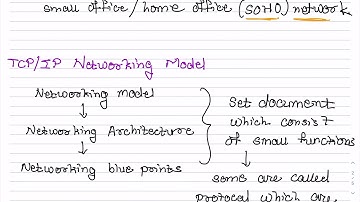 small office/home office (SOHO) network
TCP/IP Networking Model
Networking model
↓
Networking Architecture
↓
Networking blue points
Set document
which consist
of small functions
↓
some are called
protocol which are